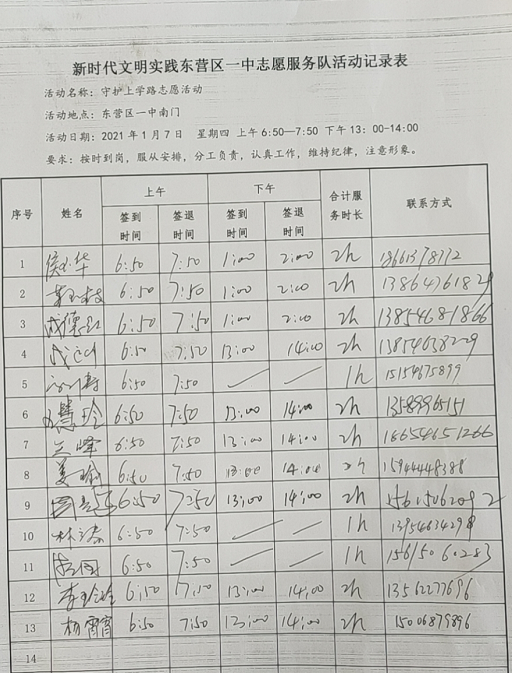 新时代文明实践东营区一中志愿服务队活动记录表
活动名称：守护上学路志愿活动
活动地点：东营区一中南门
活动日期：2021年1月7日 星期四 上午6:50—7:50 下午13：00-14:00
要求：按时到岗，服从安排，分工负责，认真工作，维持纪律，注意形象。
序号 姓名 上午 下午 合计服务时长 联系方式
签到时间 签退时间 签到时间 签退时间
1 6:50 7:50 1:00 2:00 2h
2 6:50 7:50 1:00 2:00 2h
3 6:50 7:50 1:00 2:00 2h 13854681866
4 6:50 7:50 13:00 14:00 2h
5 6:50 7:50 — — 1h 15154675899
6 6:50 7:50 13:00 14:00 2h 13589965151
7 6:50 7:50 13:00 14:00 2h 18654651266
8 6:50 7:50 13:00 14:00 2h 15944448388
9 6:50 7:50 13:00 14:00 2h
10 6:50 7:50 — — 1h
11 6:50 7:50 — — 1h 15615060283
12 6:50 7:50 13:00 14:00 2h 13562277696
13 杨霄霄 6:50 7:50 13:00 14:00 2h 15006879896
14